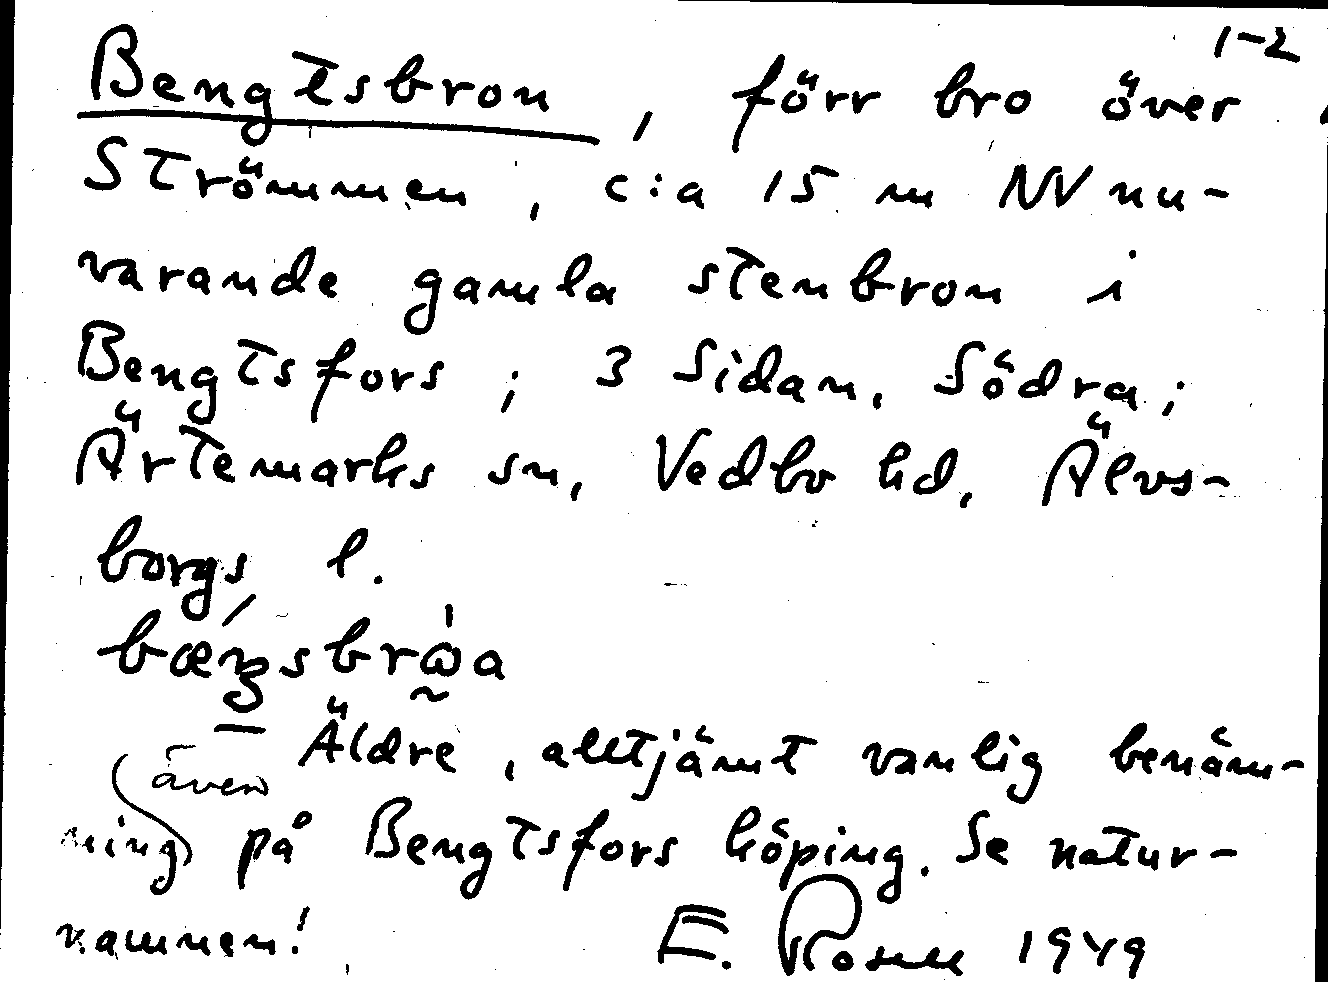 1-2
Bengtsbron, förr bro över
Strömmen, c:a 15 m NV nu-
varande gamla stenbron i
Bengtsfors; 3 Sidan, Södra;
Ärtemarks sn, Vedbo hd, Älvs-
borgs l.
Äldre, alltjämt vanlig benäm-
även
ning på Bengtsfors köping. Se natur-
namnen!
E. Rosell 1949